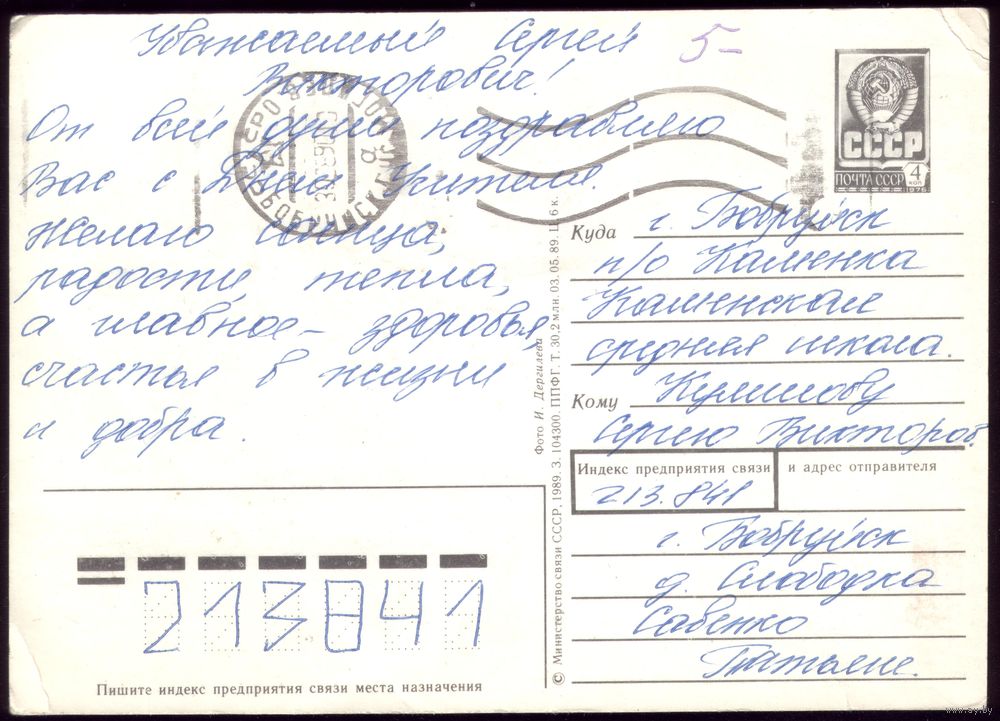 Уважаемый Сергей
Викторович!
От всей души поздравляю
Вас с Днем Учителя.
Желаю солнца,
радости, тепла,
а главное – здоровья,
счастья в жизни
и добра.
5-
СССР
ПОЧТА СССР 4 КОП
1976
Куда г. Бобруйск
п/о Каменка
Каменская
средняя школа.
Кому
Сергею Викторов.
Индекс предприятия связи и адрес отправителя
213.841
г. Бобруйск
д. Слободка
Савенко
Татьяне.
213841
Пишите индекс предприятия связи места назначения
© Министерство связи СССР, 1989. З. 104300. ППФГ. Т. 30,2 млн. 03.05.89. Ц. 6 к.
Фото И. Дергилева
www.ay.by